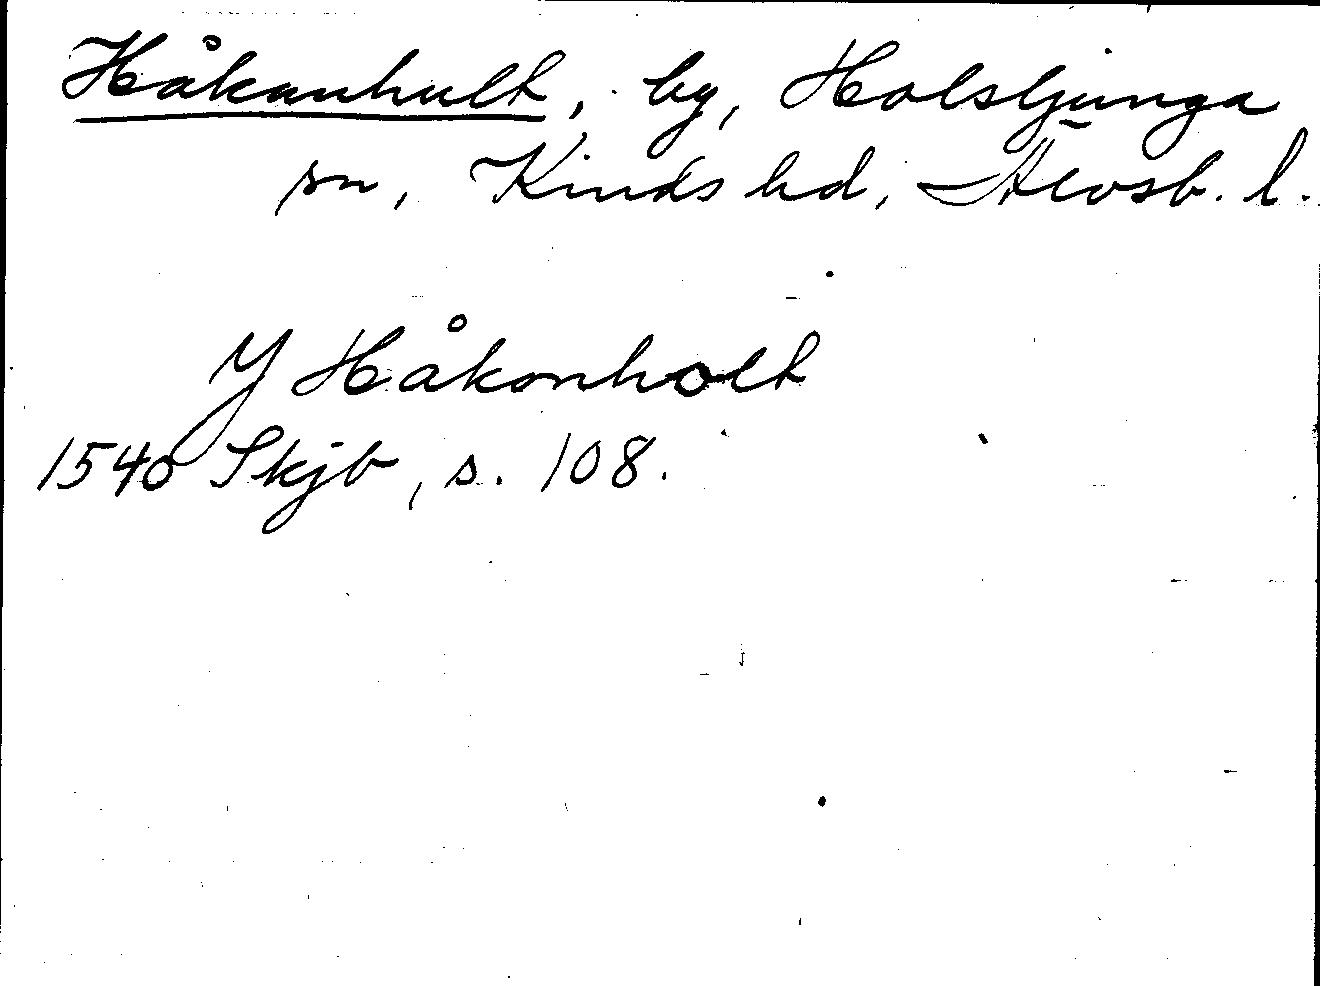 Håkanhult, by, Holsljunga
sn, Kinds hd, Älvsb. l.
Y Håkonholt
1540 Skjb, s. 108.